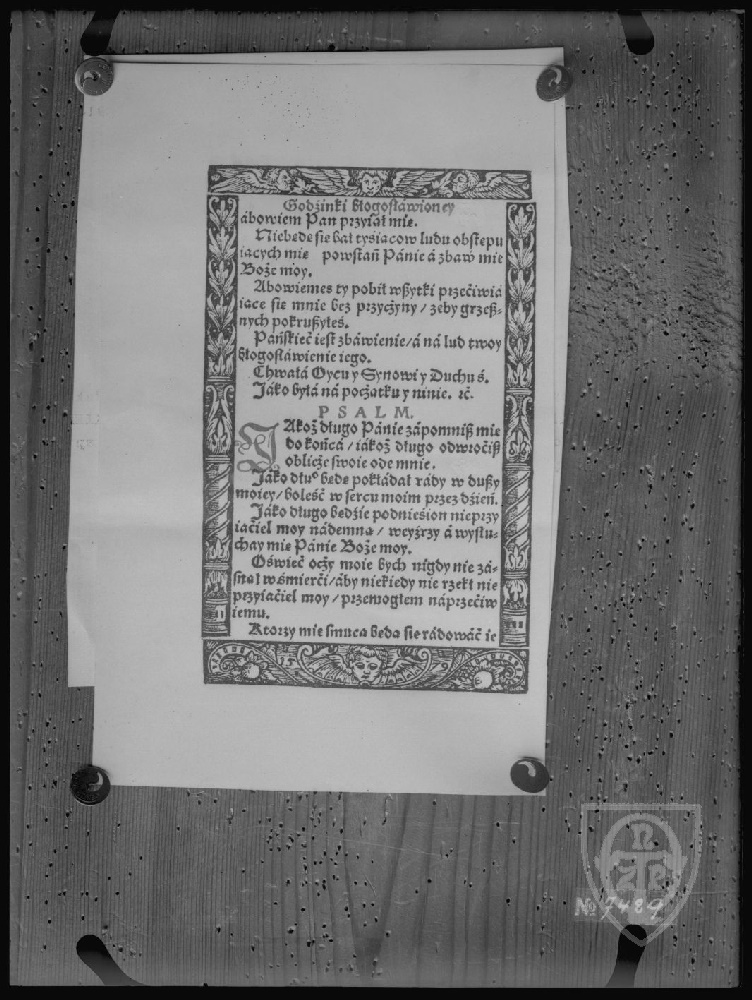 Godzinki błogosławioney
ábowiem Pan przyiał mie.
Niebede sie bał tysiacow ludu obstepu
iacych mie powstań Pánie á zbaw mie
Boże moy.
Abowiemes ty pobił wßytki przećiwia
iace sie mnie bez przyczyny / zeby grzeß-
nych pokrußyłeś.
Páńskieć iest zbáwienie/á ná lud twoy
błogosławienie iego.
Chwałá Oycu y Synowi y Duchu ś.
Jáko byłá ná początku y ninie. ꝛč.
PSALM.
JAkoż długo Pánie zápomniß mie
do końcá / iákoż długo odwroćiß
oblicze swoie ode mnie.
Jáko dłuᵒ bede pokłádał rády w dußy
moiey/boleść w sercu moim przez dzień.
Jáko długo bedzie podnieśion nieprzy
iaćiel moy nádemna / weyźrzy á wysłu-
chay mie Pánie Boże moy.
Oświeć oczy moie bych nigdy nie zá-
snał w śmierći/áby niekiedy nie rzekł nie
przyiaćiel moy / przemogłem náprzećiw
iemu.
Ktorzy mie smuca beda sie rádowáć ie
15 9
№ 9489